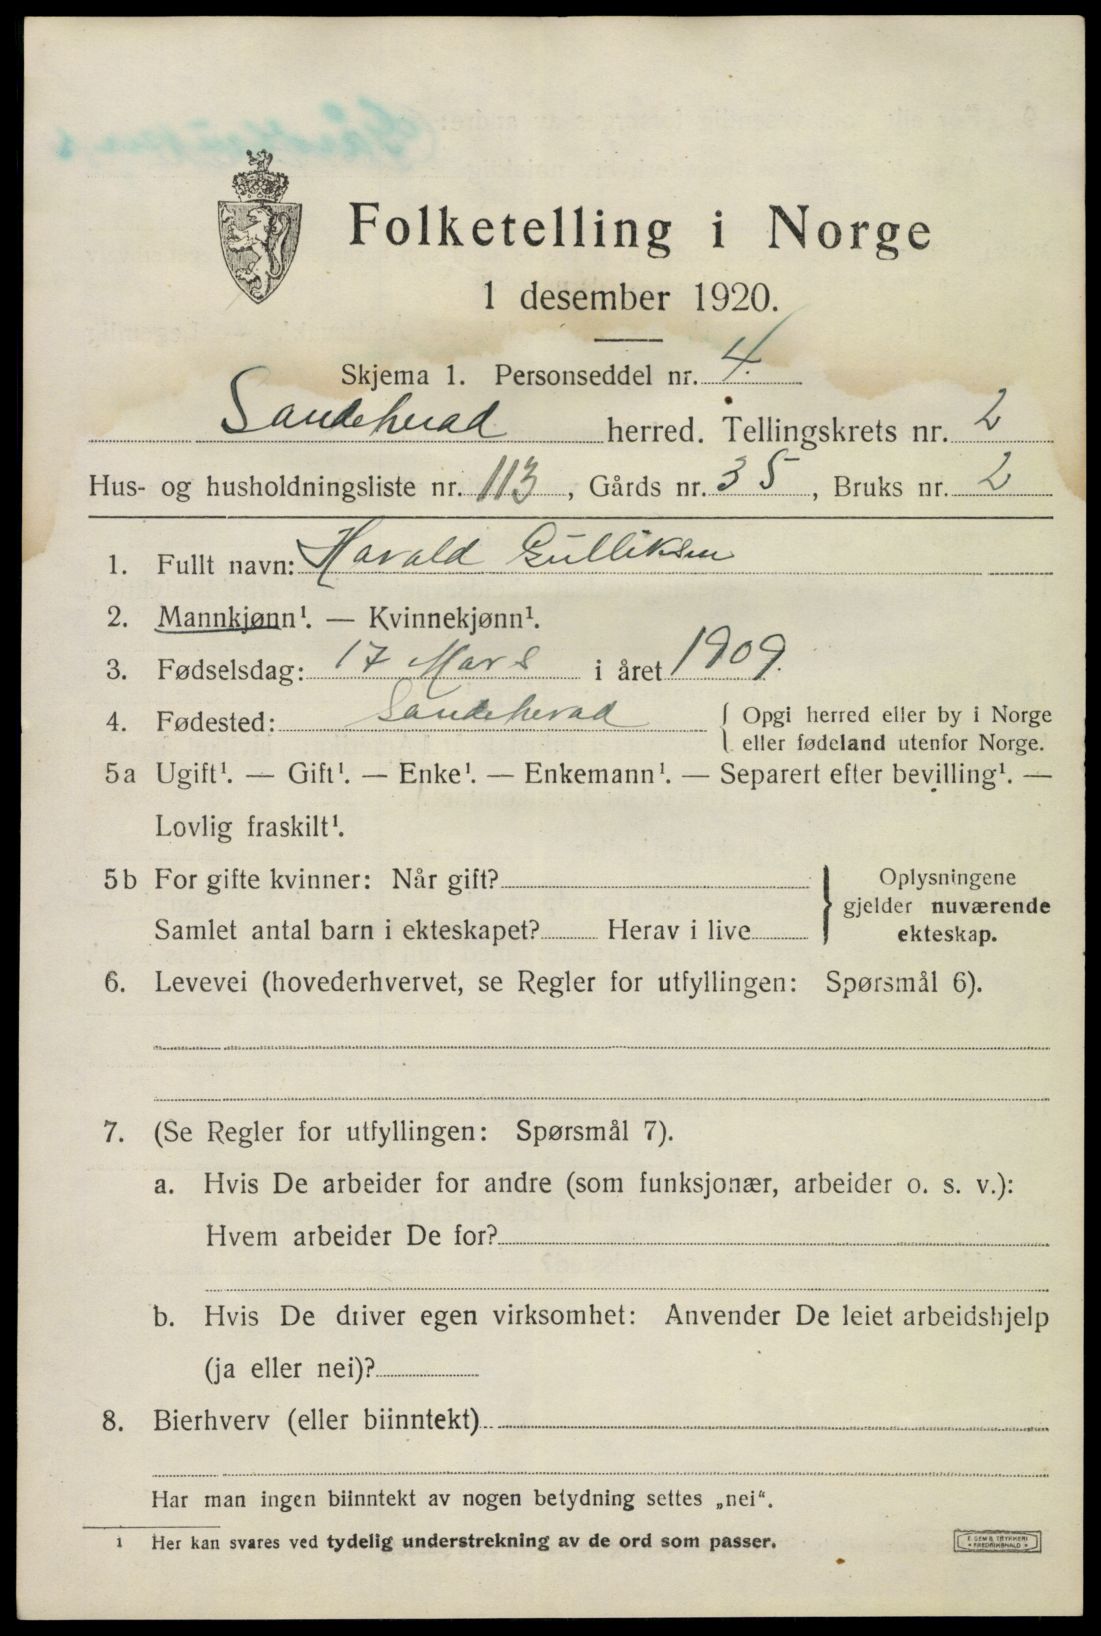 Folketelling i Norge
1 desember 1920.
Skjema 1. Personseddel nr. 4.
Sandeherad herred. Tellingskrets nr. 2
Hus- og husholdningsliste nr. 113, Gårds nr. 35, Bruks nr. 2
1. Fullt navn: Harald Gulliksen
2. Mannkjønn¹. — Kvinnekjønn¹.
3. Fødselsdag: 17 Mars i året 1909.
4. Fødested: Sandeherad { Opgi herred eller by i Norge
eller fødeland utenfor Norge.
5a Ugift¹. — Gift¹. — Enke¹. — Enkemann¹. — Separert efter bevilling¹. —
Lovlig fraskilt¹.
5b For gifte kvinner: Når gift?
Samlet antal barn i ekteskapet? Herav i live
} Oplysningene
gjelder nuværende
ekteskap.
6. Levevei (hovederhvervet, se Regler for utfyllingen: Spørsmål 6).
7. (Se Regler for utfyllingen: Spørsmål 7).
a. Hvis De arbeider for andre (som funksjonær, arbeider o. s. v.):
Hvem arbeider De for?
b. Hvis De driver egen virksomhet: Anvender De leiet arbeidshjelp
(ja eller nei)?
8. Bierhverv (eller biinntekt)
Har man ingen biinntekt av nogen betydning settes „nei“.
1 Her kan svares ved tydelig understrekning av de ord som passer.
E. SEMS TRYKKERI
• FREDRIKSHALD •